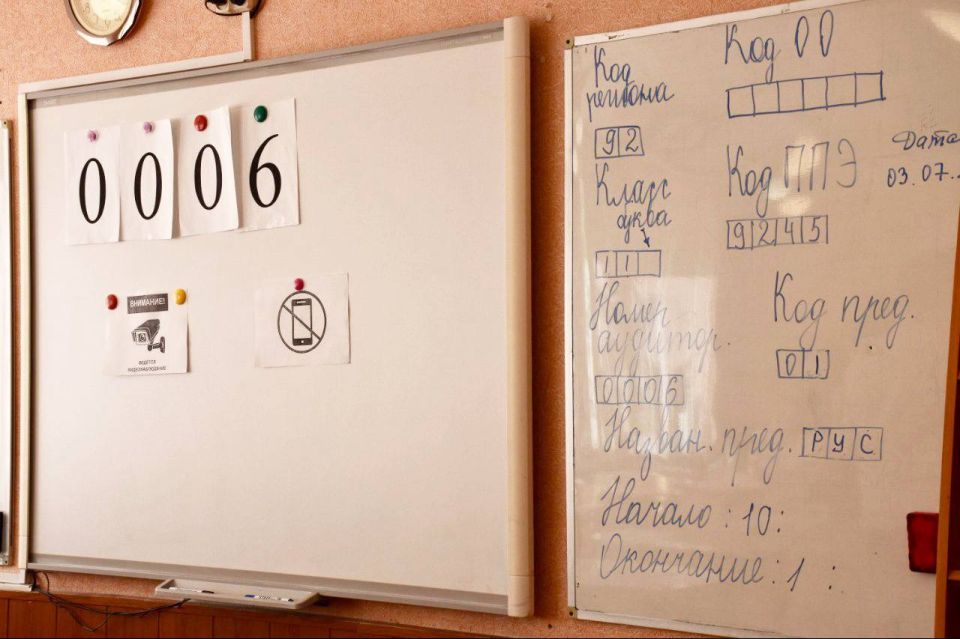 0006
ВНИМАНИЕ!
ВЕДЕТСЯ
ВИДЕОНАБЛЮДЕНИЕ
Код региона
92
Класс буква
11
Номер аудитор.
0006
Код ОО
Код ППЭ
9245
Дата
03.07.
Код пред.
01
Назван. пред. РУС
Начало: 10:
Окончание: 1 :